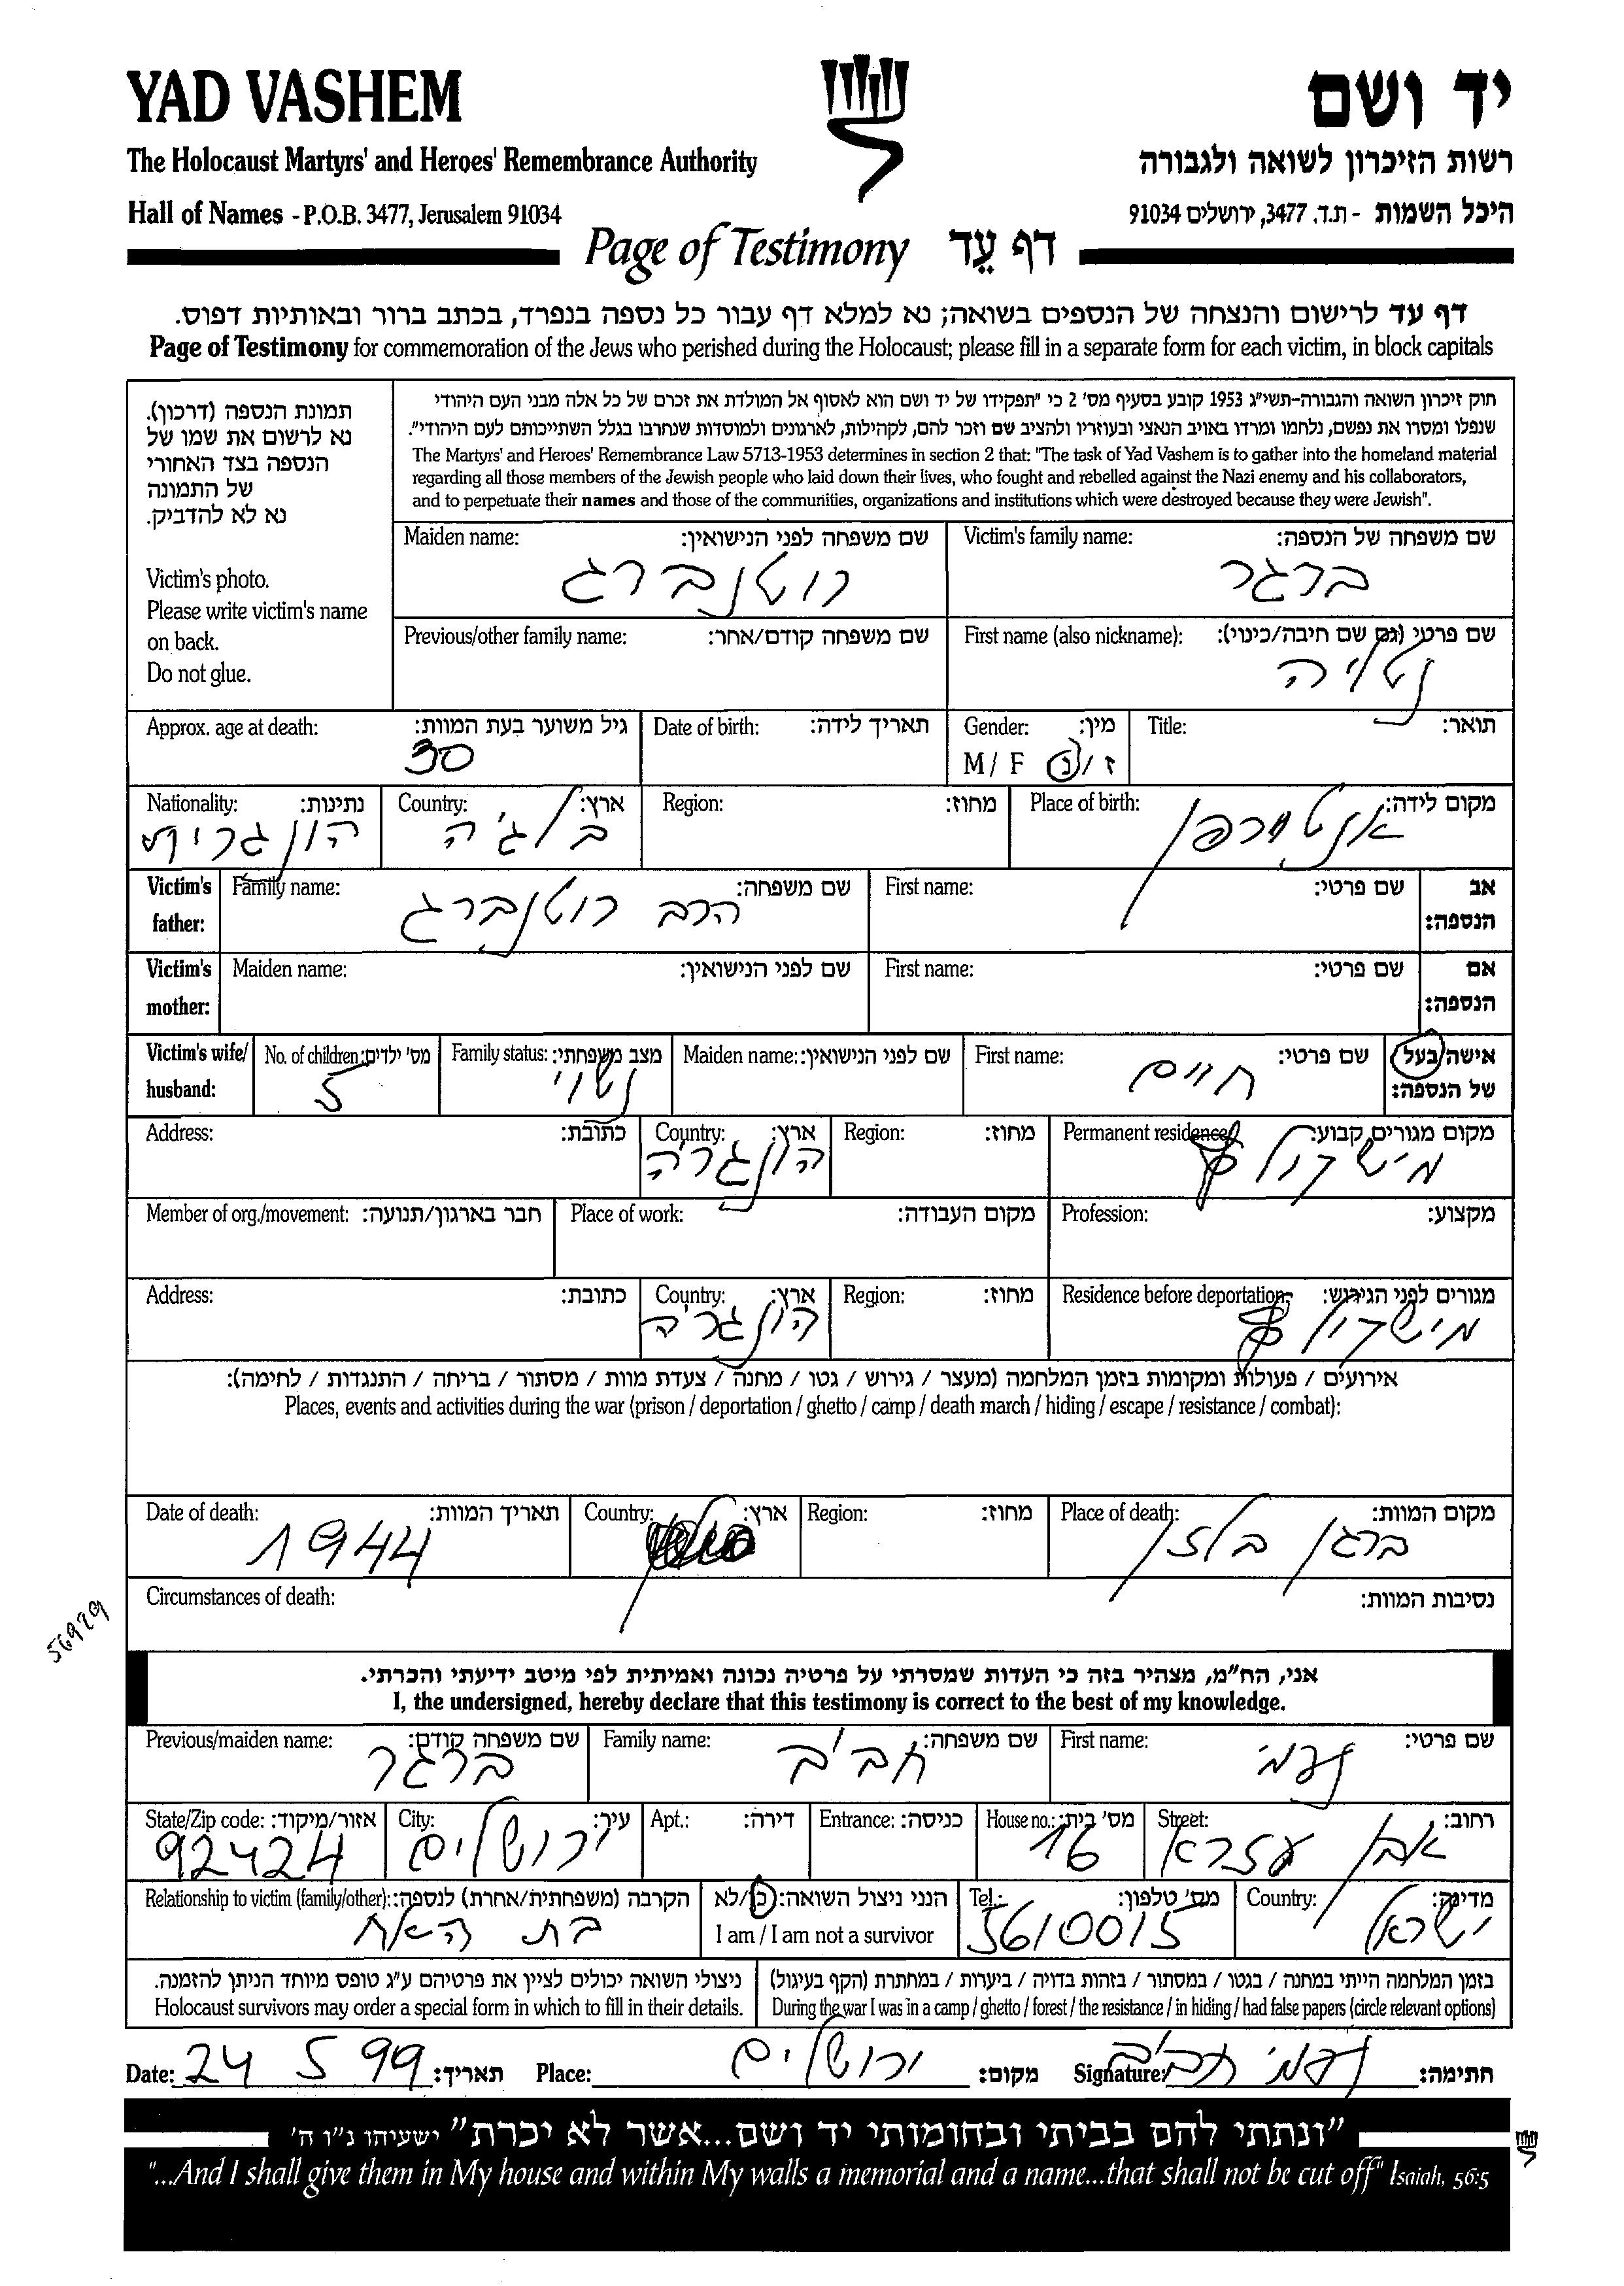 YAD VASHEM
יד ושם
The Holocaust Martyrs' and Heroes' Remembrance Authority
רשות הזיכרון לשואה ולגבורה
Hall of Names - P.O.B. 3477, Jerusalem 91034
היכל השמות - ת.ד. 3477, ירושלים 91034
Page of Testimony דף עֵד
דף עד לרישום והנצחה של הנספים בשואה; נא למלא דף עבור כל נספה בנפרד, בכתב ברור ובאותיות דפוס.
Page of Testimony for commemoration of the Jews who perished during the Holocaust; please fill in a separate form for each victim, in block capitals
תמונת הנספה (דרכון).
נא לרשום את שמו של
הנספה בצד האחורי
של התמונה
נא לא להדביק.
Victim's photo.
Please write victim's name
on back.
Do not glue.
חוק זיכרון השואה והגבורה-תשי"ג 1953 קובע בסעיף מס' 2 כי "תפקידו של יד ושם הוא לאסוף אל המולדת את זכרם של כל אלה מבני העם היהודי
שנפלו ומסרו את נפשם, נלחמו ומרדו באויב הנאצי ובעוזריו ולהציב שם וזכר להם, לקהילות, לארגונים ולמוסדות שנחרבו בגלל השתייכותם לעם היהודי".
The Martyrs' and Heroes' Remembrance Law 5713-1953 determines in section 2 that: "The task of Yad Vashem is to gather into the homeland material
regarding all those members of the Jewish people who laid down their lives, who fought and rebelled against the Nazi enemy and his collaborators,
and to perpetuate their names and those of the communities, organizations and institutions which were destroyed because they were Jewish".
Victim's family name: שם משפחה של הנספה:
ברגר
Maiden name: שם משפחה לפני הנישואין:
רוטנברג
First name (also nickname): שם פרטי (גם שם חיבה/כינוי):
Previous/other family name: שם משפחה קודם/אחר:
Title: תואר:
Gender: מין:
M / F ז / נ
Date of birth: תאריך לידה:
Approx. age at death: גיל משוער בעת המוות:
30
Place of birth: מקום לידה:
אנטוורפן
Region: מחוז:
Country: ארץ:
בלגיה
Nationality: נתינות:
הונגרית
Victim's father: אב הנספה:
First name: שם פרטי:
Family name: שם משפחה:
הרב רוטנברג
Victim's mother: אם הנספה:
First name: שם פרטי:
Maiden name: שם לפני הנישואין:
Victim's wife/ husband: אישה/בעל של הנספה:
First name: שם פרטי:
חיים
Maiden name: שם לפני הנישואין:
Family status: מצב משפחתי:
נשוי
No. of children: מס' ילדים:
5
Permanent residence: מקום מגורים קבוע:
מישקולץ
Region: מחוז:
Country: ארץ:
הונגריה
Address: כתובת:
Profession: מקצוע:
Place of work: מקום העבודה:
Member of org./movement: חבר בארגון/תנועה:
Residence before deportation: מגורים לפני הגירוש:
מישקולץ
Region: מחוז:
Country: ארץ:
הונגריה
Address: כתובת:
אירועים / פעולות ומקומות בזמן המלחמה (מעצר / גירוש / גטו / מחנה / צעדת מוות / מסתור / בריחה / התנגדות / לחימה):
Places, events and activities during the war (prison / deportation / ghetto / camp / death march / hiding / escape / resistance / combat):
Place of death: מקום המוות:
ברגן בלזן
Region: מחוז:
Country: ארץ:
Date of death: תאריך המוות:
1944
Circumstances of death: נסיבות המוות:
56979
אני, הח"מ, מצהיר בזה כי העדות שמסרתי על פרטיה נכונה ואמיתית לפי מיטב ידיעתי והכרתי.
I, the undersigned, hereby declare that this testimony is correct to the best of my knowledge.
First name: שם פרטי:
נעמי
Family name: שם משפחה:
חביב
Previous/maiden name: שם משפחה קודם:
ברגר
Street: רחוב:
אבן עזרא
House no.: מס' בית:
16
Entrance: כניסה:
Apt.: דירה:
City: עיר:
ירושלים
State/Zip code: אזור/מיקוד:
92424
Country: מדינה:
ישראל
Tel.: מס' טלפון:
5610015
הנני ניצול השואה: כן/לא
I am / I am not a survivor
Relationship to victim (family/other): הקרבה (משפחתית/אחרת) לנספה:
בת האח
בזמן המלחמה הייתי במחנה / בגטו / במסתור / בזהות בדויה / ביערות / במחתרת (הקף בעיגול)
During the war I was in a camp / ghetto / forest / the resistance / in hiding / had false papers (circle relevant options)
ניצולי השואה יכולים לציין את פרטיהם ע"ג טופס מיוחד הניתן להזמנה.
Holocaust survivors may order a special form in which to fill in their details.
Date: 24 5 99 תאריך: Place: ירושלים מקום: Signature: נעמי חביב חתימה:
"ונתתי להם בביתי ובחומותי יד ושם...אשר לא יכרת" ישעיהו נ"ו ה'
"...And I shall give them in My house and within My walls a memorial and a name...that shall not be cut off" Isaiah, 56:5